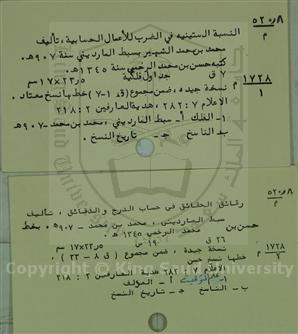 ٥٢٠٫٨
م
النسبة الستينيه في الضرب للأعمال الحسابية، تأليف
محمد بن محمد الشهير بسبط المارديني سنة ٩٠٧ هـ.
كتبه حسن بن محمد الرحمي سنة ١٣٤٥ هـ.
٧ ق جداول فلكية ٢٣٫٥×١٧ سم
١٧٢٨
١ م
نسخة جيدة، ضمن مجموع (ق ١-٧) خطها نسخ معتاد.
الاعلام ٧: ٢٨٢، هدية العارفين ٢: ٢١٨
١- الفلك أ- سبط المارديني، محمد بن محمد -٩٠٧ هـ
ب- الناسخ جـ- تاريخ النسخ.
٥٢٠٫٨
م
رقائق الحقائق في حساب الدرج والدقائق، تأليف
سبط المارديني، محمد بن محمد - ٩٠٧ هـ، بخط
حسن بن محمد الرحمي ١٣٤٥ هـ.
٢٦ ق ١٩ س ٢٣٫٥×١٧ سم
١٧٢٨
٢ م
نسخة جيدة، ضمن مجموع (ق ٨ - ٣٣)،
خطها نسخ حسن
الأعلام ٧: ٢٨٢ هدية العارفين ٢: ٢١٨
أ- المؤلف
ب- الناسخ جـ- تاريخ النسخ
Copyright © King Saud University